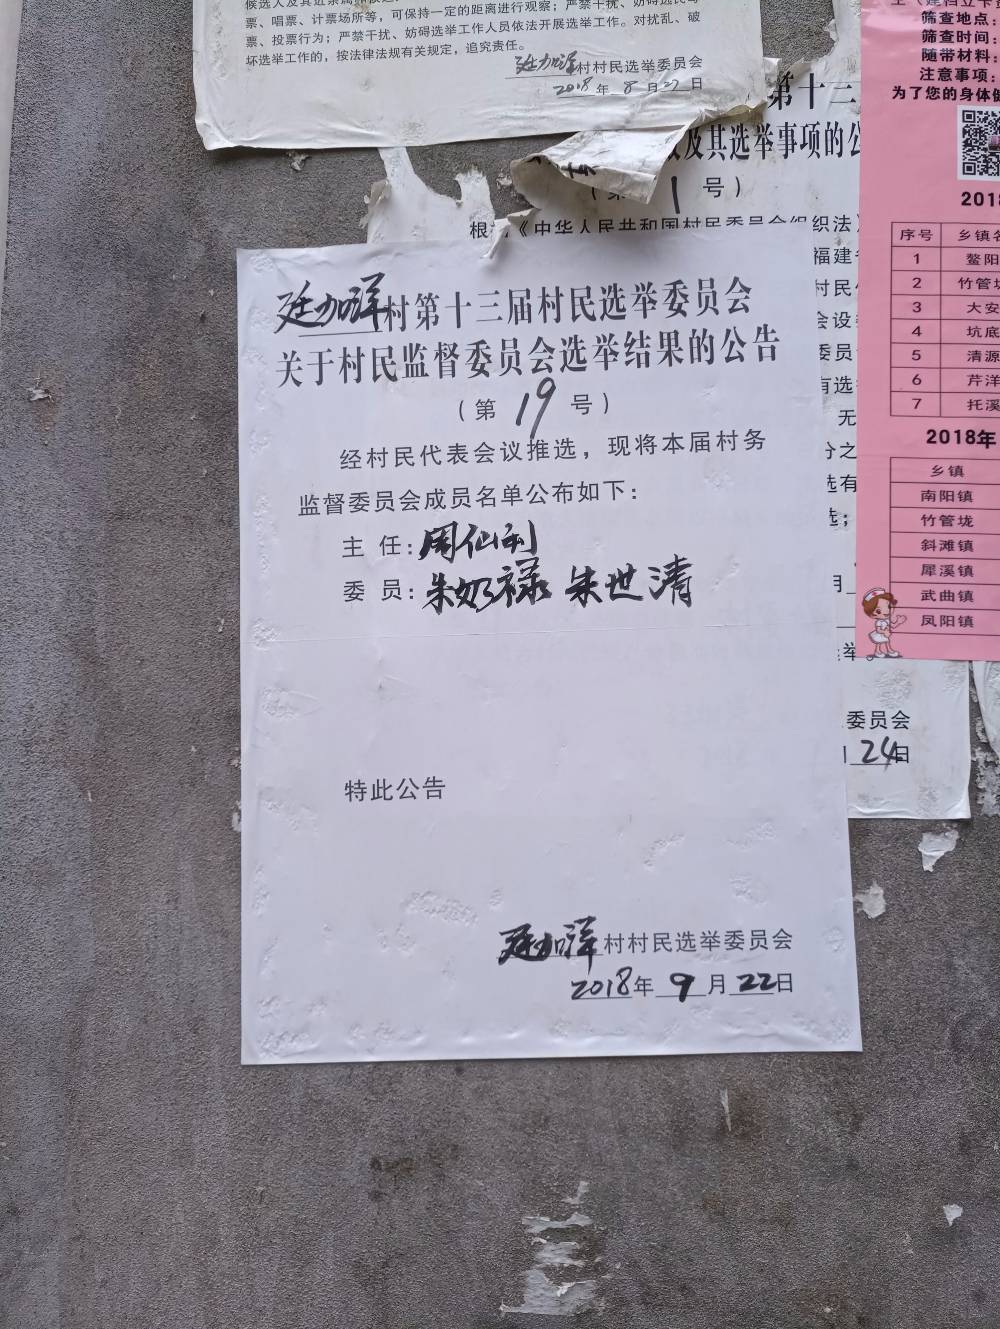 票、唱票、计票场所等，可保持一定的距离进行观察；严禁干扰、妨碍选民写
票、投票行为；严禁干扰、妨碍选举工作人员依法开展选举工作。对扰乱、破
坏选举工作的，按法律法规有关规定，追究责任。
廷加洋村村民选举委员会
2018年8月27日
第十三
及其选举事项的公
（第1号）
根 《中华人民共和国村民委员会组织法》
福建省
廷加洋村第十三届村民选举委员会
关于村民监督委员会选举结果的公告
（第19号）
经村民代表会议推选，现将本届村务
监督委员会成员名单公布如下：
主 任：周仙利
委 员：朱奶禄 朱世清
特此公告
廷加洋村村民选举委员会
2018年9月22日
委员会
24日
筛查地点：
筛查时间：
随带材料：
注意事项：
为了您的身体健
序号 乡镇名
1 鳌阳
2 竹管垅
3 大安
4 坑底
5 清源
6 芹洋
7 托溪
2018年
乡镇
南阳镇
竹管垅
斜滩镇
犀溪镇
武曲镇
凤阳镇